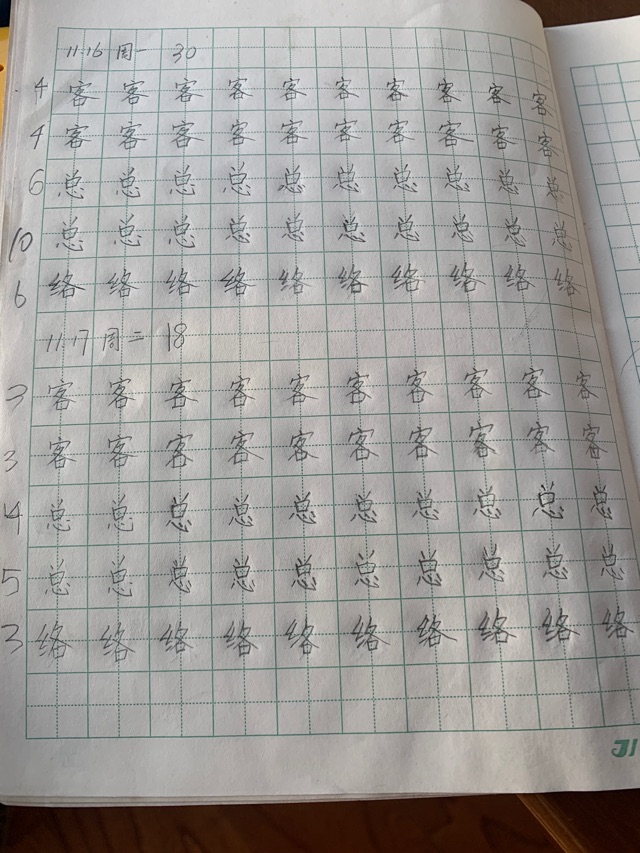 11.16 周一 30
4 客客客客客客客客客客
4 客客客客客客客客客客
6 总总总总总总总总总总
10 总总总总总总总总总总
6 络络络络络络络络络络
11.17 周二 18
3 客客客客客客客客客客
3 客客客客客客客客客客
4 总总总总总总总总总总
5 总总总总总总总总总总
3 络络络络络络络络络络